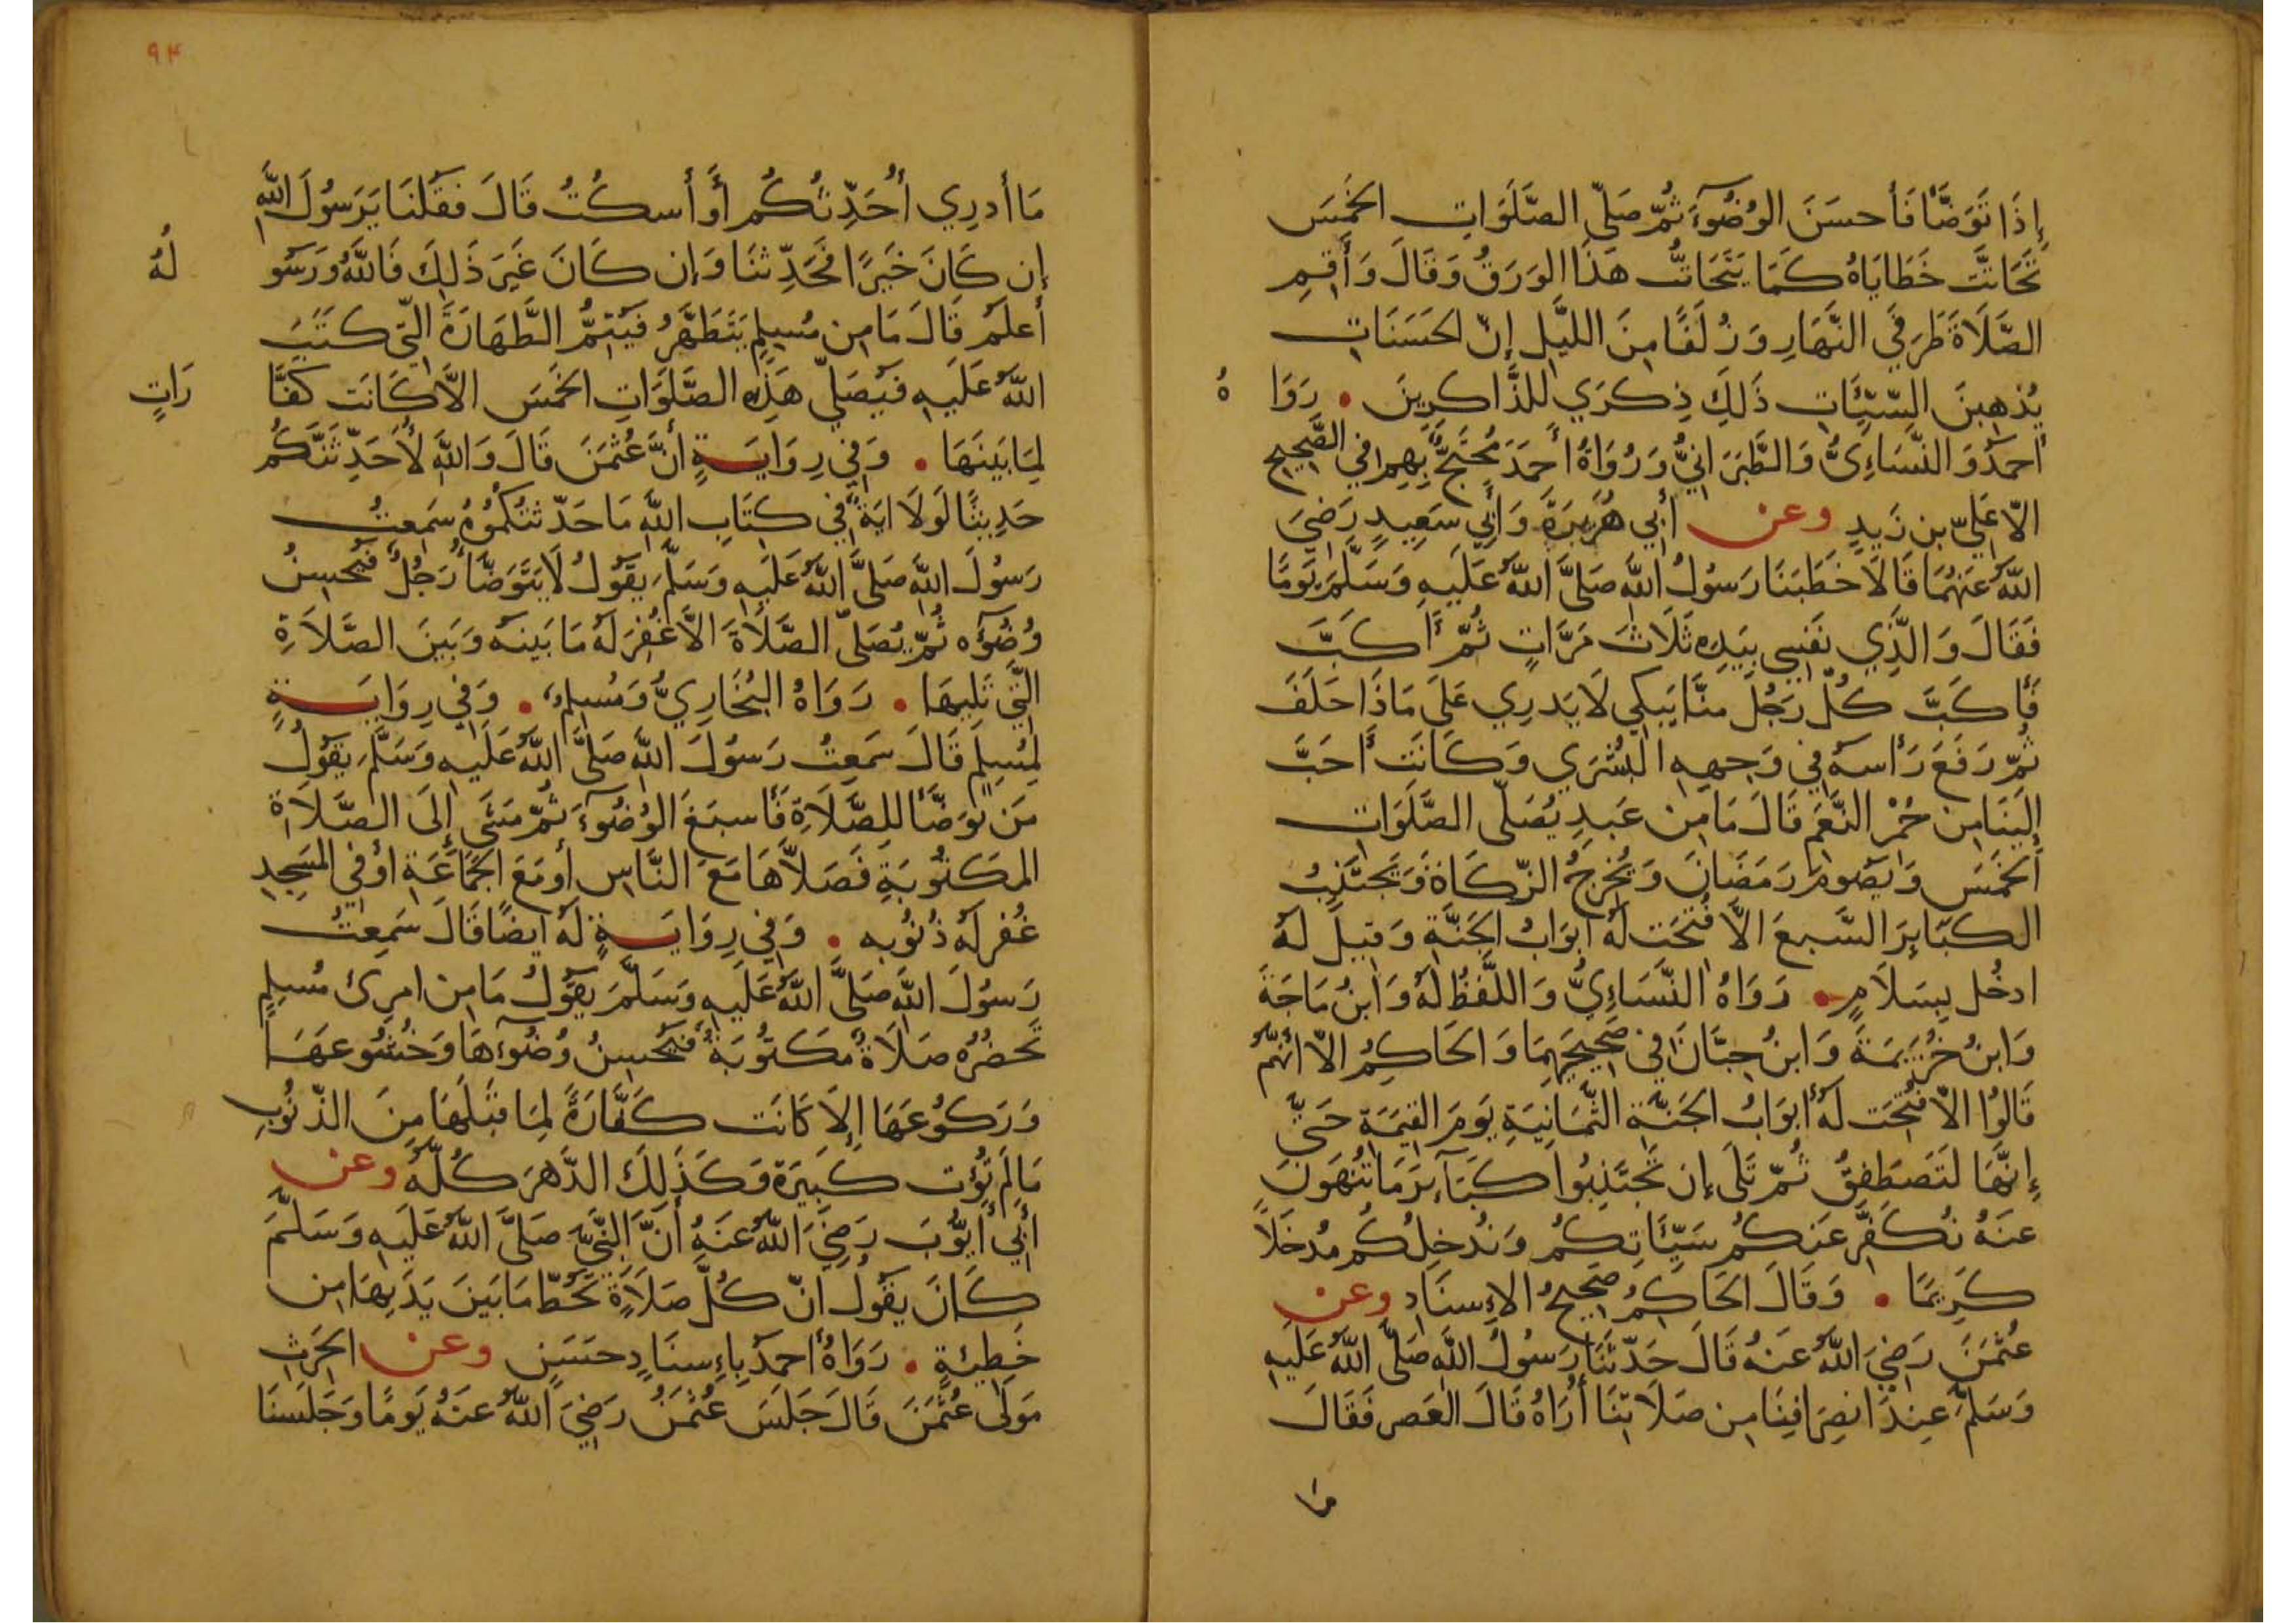 إِذَا تَوَضَّأَ فَأَحسَنَ الوُضُوٓءَ ثُمّ صَلّى الصَّلَوَاتِ الخَمْسَ
تَحَاتَّت خَطَايَاهُ كَمَا يَتَحَاتُّ هَذَا الوَرَقُ وَقَالَ وَأَقِمِ
الصَّلَاةَ طَرَفَيِ النَّهَارِ وَزُلَفًا مِنَ اللَّيلِ إِنّ الحَسَنَاتِ
يُذهِبنَ السَّيِّئَاتِ ذَلِكَ ذِكرَي لِلذَّاكِرِينَ • رَوَا هُ
أَحمَدُ وَالنَّسَاءِيُّ وَالطَّبَرَانِيُّ وَرُوَاةُ أَحمَدَ مُحتَجٌّ بِهِم في الصَّحِيحِ
الاّ عَلِيَّ بن زَيدٍ وعن أَبِي هُرَيرَةَ وَأَبِي سَعِيدٍ رَضِيَ
اللّٰهُ عَنهُمَا قَالَا خَطَبَنَا رَسُولُ اللّٰهِ صَلَّى اللّٰهُ عَلَيهِ وَسَلَّمَ يَومًا
فَقَالَ وَالَّذِي نَفسِي بِيَدِهِ ثَلَاثَ مَرَّاتٍ ثُمّ أَكَبَّ
فَأَكَبَّ كُلّ رَجُلٍ مِنَّا يَبكِي لَا يَدرِي عَلَى مَاذَا حَلَفَ
ثُمّ رَفَعَ رَأسَهُ فِي وَجهِهِ البُشرَي وَكَانَت أَحَبَّ
إِلَينَا مِن حُمْرِ النَّعَمِ قَالَ مَا مِن عَبدٍ يُصَلّى الصَّلَوَاتِ
الخَمسَ وَيَصُومُ رَمَضَانَ وَيُخرِجُ الزّكَاةَ وَيَجتَنِبُ
الكَبَايِرَ السَّبعَ الاّ فُتحَت لَهُ أَبوَابُ الجَنَّةِ وَقِيلَ لَهُ
ادخُل بِسَلَامٍ • رَوَاهُ النَّسَاءِيُّ وَاللَّفظُ لَهُ وَابنُ مَاجَةَ
وَابنُ خُزَيمَةَ وَابنُ حِبَّانَ في صَحِيحَيهِمَا وَالحَاكِمُ الاّ أَنّهُم
قَالُوا الاّ فُتِحَت لَهُ أَبوَابُ الجَنَّةِ الثَّمَانِيَةِ يَومَ القِيمَةِ حَتّي
إِنَّهَا لَتَصطَفِقُ ثُمّ تَلَى إِن تَجتَنِبُوا كَبَآئِرَ مَا تُنهَونَ
عَنهُ نُكَفِّر عَنكُم سَيِّئَاتِكُم وَنُدخِلكُم مُدخَلًا
كَرِيمًا • وَقَالَ الحَاكِمُ صَحِيحُ الإِسنَادِ وعن
عُثمَنَ رَضِيَ اللّٰهُ عَنهُ قَالَ حَدّثَنَا رَسُولُ اللّٰهِ صَلَّى اللّٰهُ عَلَيهِ
وَسَلَّمَ عِندَ انصِرَافِنَا مِن صَلَاتِنَا أُرَاهُ قَالَ العَصرِ فَقَالَ
ما
٩٤
مَا أَدرِي أُحَدِّثُكُم أَو أَسكُتُ قَالَ فَقُلنَا يَرَسُولَ اللّٰهِ
إِن كَانَ خَيرًا فَحَدِّثنَا وَإِن كَانَ غَيرَ ذَلِكَ فَاللّٰهُ وَرَسُو لُهُ
أَعلَمُ قَالَ مَا مِن مُسلِمٍ يَتَطَهَّرُ فَيُتِمُّ الطَّهَارَةَ الّتي كَتَبَ
اللّٰهُ عَلَيهِ فَيُصَلّي هَذِهِ الصَّلَوَاتِ الخَمسَ الاَّ كَانَت كَفَّا رَاتٍ
لِمَا بَينَهَا • وَفي رِوَايَةٍ أَنَّ عُثمَنَ قَالَ وَاللّٰهِ لَأُحَدِّثَنَّكُم
حَدِيثًا لَولَا ايَةٌ في كِتَابِ اللّٰهِ مَا حَدّثتُكُمُوهُ سَمِعتُ
رَسُولَ اللّٰهِ صَلَّى اللّٰهُ عَلَيهِ وَسَلَّمَ يَقُولُ لَا يَتَوَضَّأُ رَجُلٌ فَيُحسِنُ
وُضُوٓءه ثُمّ يُصَلّي الصَّلَاةَ الاَّ غُفِرَ لَهُ مَا بَينَهُ وَبَينَ الصَّلَاةِ
الّتي تَلِيهَا • رَوَاهُ البُخَارِيُّ وَمُسلِمٌ • وَفي رِوَايَةٍ
لِمُسلِمٍ قَالَ سَمِعتُ رَسُولَ اللّٰهِ صَلَّى اللّٰهُ عَلَيهِ وَسَلَّمَ يَقُولُ
مَن تَوَضَّأَ لِلصَّلَاةِ فَأَسبَغَ الوُضُوٓءَ ثُمّ مَشَي إِلَى الصَّلَاةِ
المَكتُوبَةِ فَصَلَّاهَا مَعَ النَّاسِ أَو مَعَ الجَمَاعَةِ أَو في المَسجِدِ
غُفر لَهُ ذُنُوبه • وَفي رِوَايَةٍ لَهُ أَيضًا قَالَ سَمِعتُ
رَسُولَ اللّٰهِ صَلَّى اللّٰهُ عَلَيهِ وَسَلَّمَ يَقُولُ مَا مِن امرِئ مُسلِمٍ
تَحضُرُهُ صَلَاةٌ مَكتُوبَةٌ فَيُحسِنُ وُضُوٓءهَا وَخُشُوعَهَا
وَرَكُوعَهَا اِلاَ كَانَت كَفَّارَةً لِمَا قَبلَهَا مِنَ الذّنُوبِ
مَا لَم تُؤت كَبِيرَة وَكَذَلِكَ الدَّهرَ كُلّهُ وعن
أَبِي أَيُّوبَ رَضِيَ اللّٰهُ عَنهُ أَنَّ النَّبيَّ صَلَّى اللّٰهُ عَلَيهِ وَسَلَّمَ
كَانَ يَقُولُ انّ كُلّ صَلَاةٍ تَحُطّ مَا بَينَ يَدَيهَا مِن
خَطِيئَةٍ • رَوَاهُ أَحمَدُ بِإِسنَادٍ حَسَنٍ وعن الحَرثِ
مَولَى عُثمَنَ قَالَ جَلَسَ عُثمَنُ رَضِيَ اللّٰهُ عَنهُ يَومًا وَجَلَسنَا